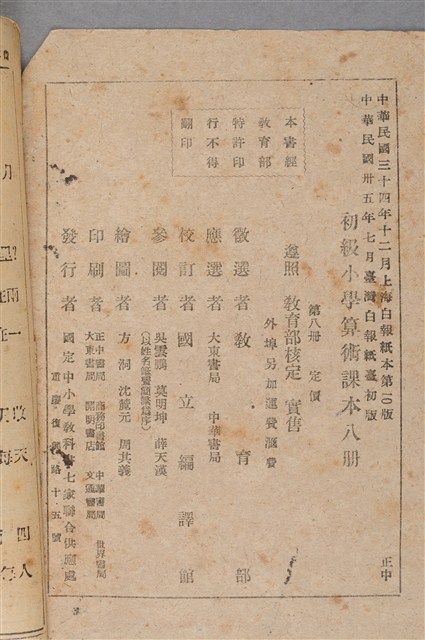 中華民國三十四年十二月上海白報紙本第一〇版
中華民國卅五年七月臺灣白報紙臺初版
正中
初級小學算術課本八册
第八册 定價
遵照教育部核定實售
外埠另加運費滙費
本書經
教育部
特許印
行不得
翻印
徵選者 教育部
應選者 大東書局 中華書局
校訂者 國立編譯館
參閱者 吳雲鵬 莫明坤 薛天漢
(以姓名筆畫簡繁爲序)
繪圖者 方洞 沈麓元 周其義
印刷者 正中書局 商務印書館 中華書局 世界書局
大東書局 開明書店 文通書局
發行者 國定中小學教科書七家聯合供應處
重慶復興路十五號